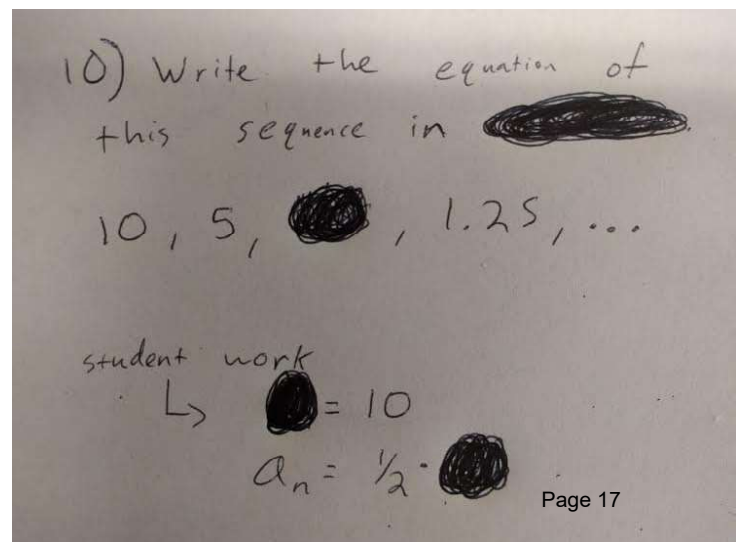 10) Write the equation of
this sequence in .
10, 5, , 1.25, ...
student work
↳ = 10
aₙ = 1/2 ·
Page 17